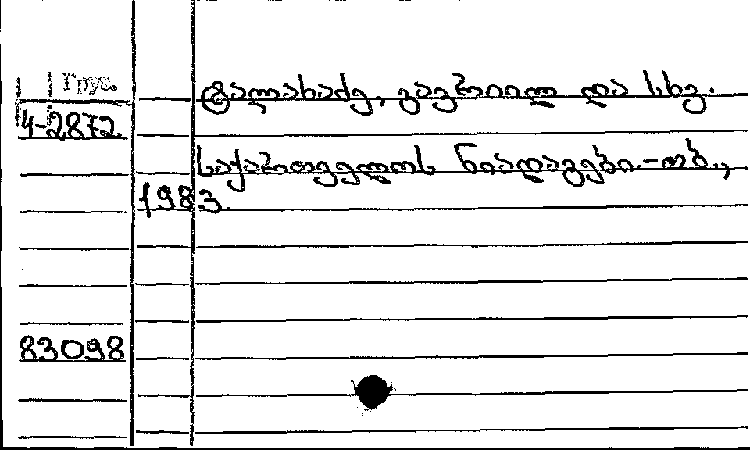 Груз.
ტალახაძე, გავრიილ და სხვ.
4-2872.
საქართველოს ნიადაგები.-თბ.,
1983.
83098